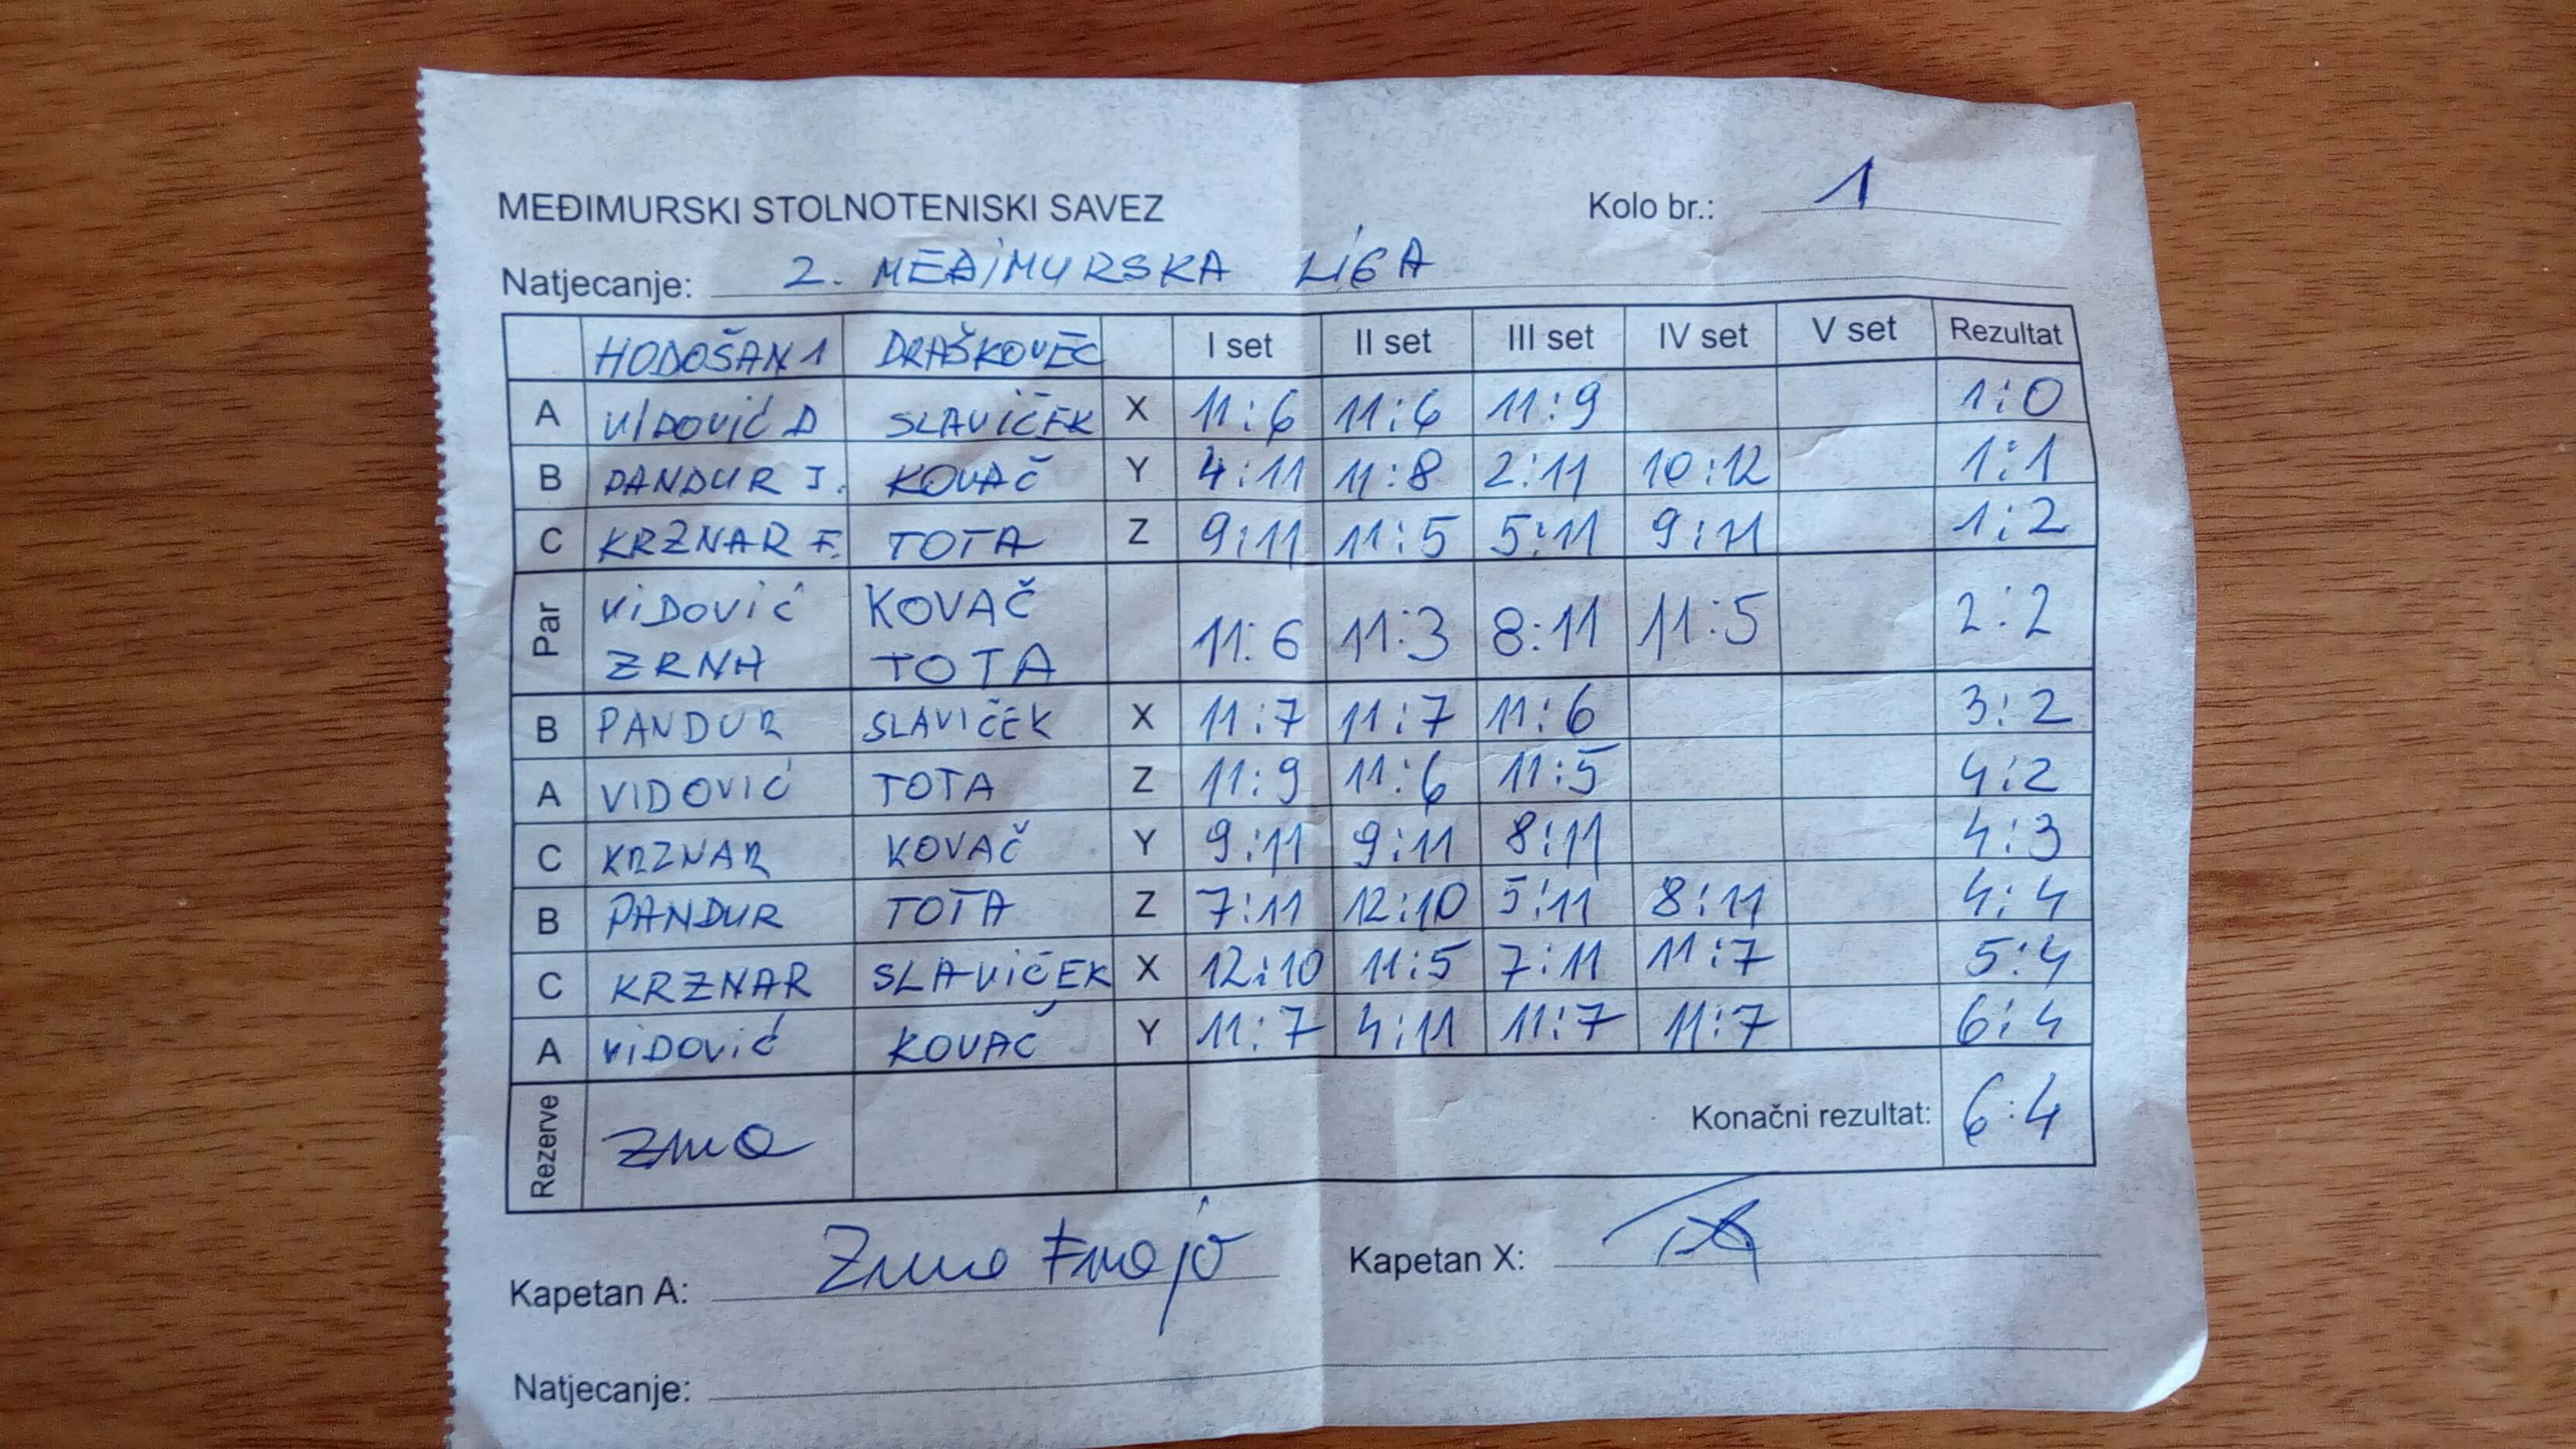 MEĐIMURSKI STOLNOTENISKI SAVEZ Kolo br.: 1
Natjecanje: 2. MEĐIMURSKA LIGA
HODOŠAN 1 DRAŠKOVEC I set II set III set IV set V set Rezultat
A VIDOVIĆ D SLAVIČEK X 11:6 11:6 11:9 1:0
B PANDUR I. KOVAČ Y 4:11 11:8 2:11 10:12 1:1
C KRZNAR F. TOTA Z 9:11 11:5 5:11 9:11 1:2
Par VIDOVIĆ KOVAČ 11:6 11:3 8:11 11:5 2:2
ZRNA TOTA
B PANDUR SLAVIČEK X 11:7 11:7 11:6 3:2
A VIDOVIĆ TOTA Z 11:9 11:6 11:5 4:2
C KRZNAR KOVAČ Y 9:11 9:11 8:11 4:3
B PANDUR TOTA Z 7:11 12:10 5:11 8:11 4:4
C KRZNAR SLAVIČEK X 12:10 11:5 7:11 11:7 5:4
A VIDOVIĆ KOVAČ Y 11:7 4:11 11:7 11:7 6:4
Rezerve Zrna Konačni rezultat: 6:4
Kapetan A: Zrna Kapetan X:
Natjecanje: